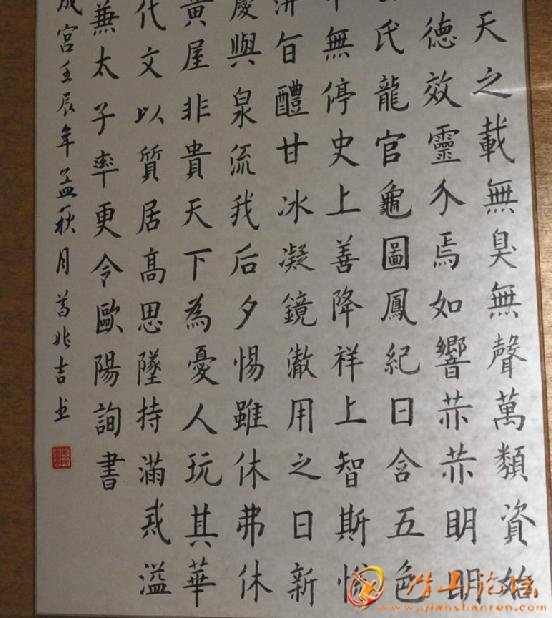 天之載無臭無聲萬類資始
德效靈介焉如響赫赫明明
氏龍官龜圖鳳紀日含五色
無停史上善降祥上智斯悅
旨醴甘冰凝鏡澈用之日新
慶與泉流我后夕惕雖休弗休
黃屋非貴天下為憂人玩其華
代文以質居髙思墜持滿戒溢
兼太子率更令歐陽詢書
成宮壬辰年孟秋月葛兆吉书
www.qianshanren.com